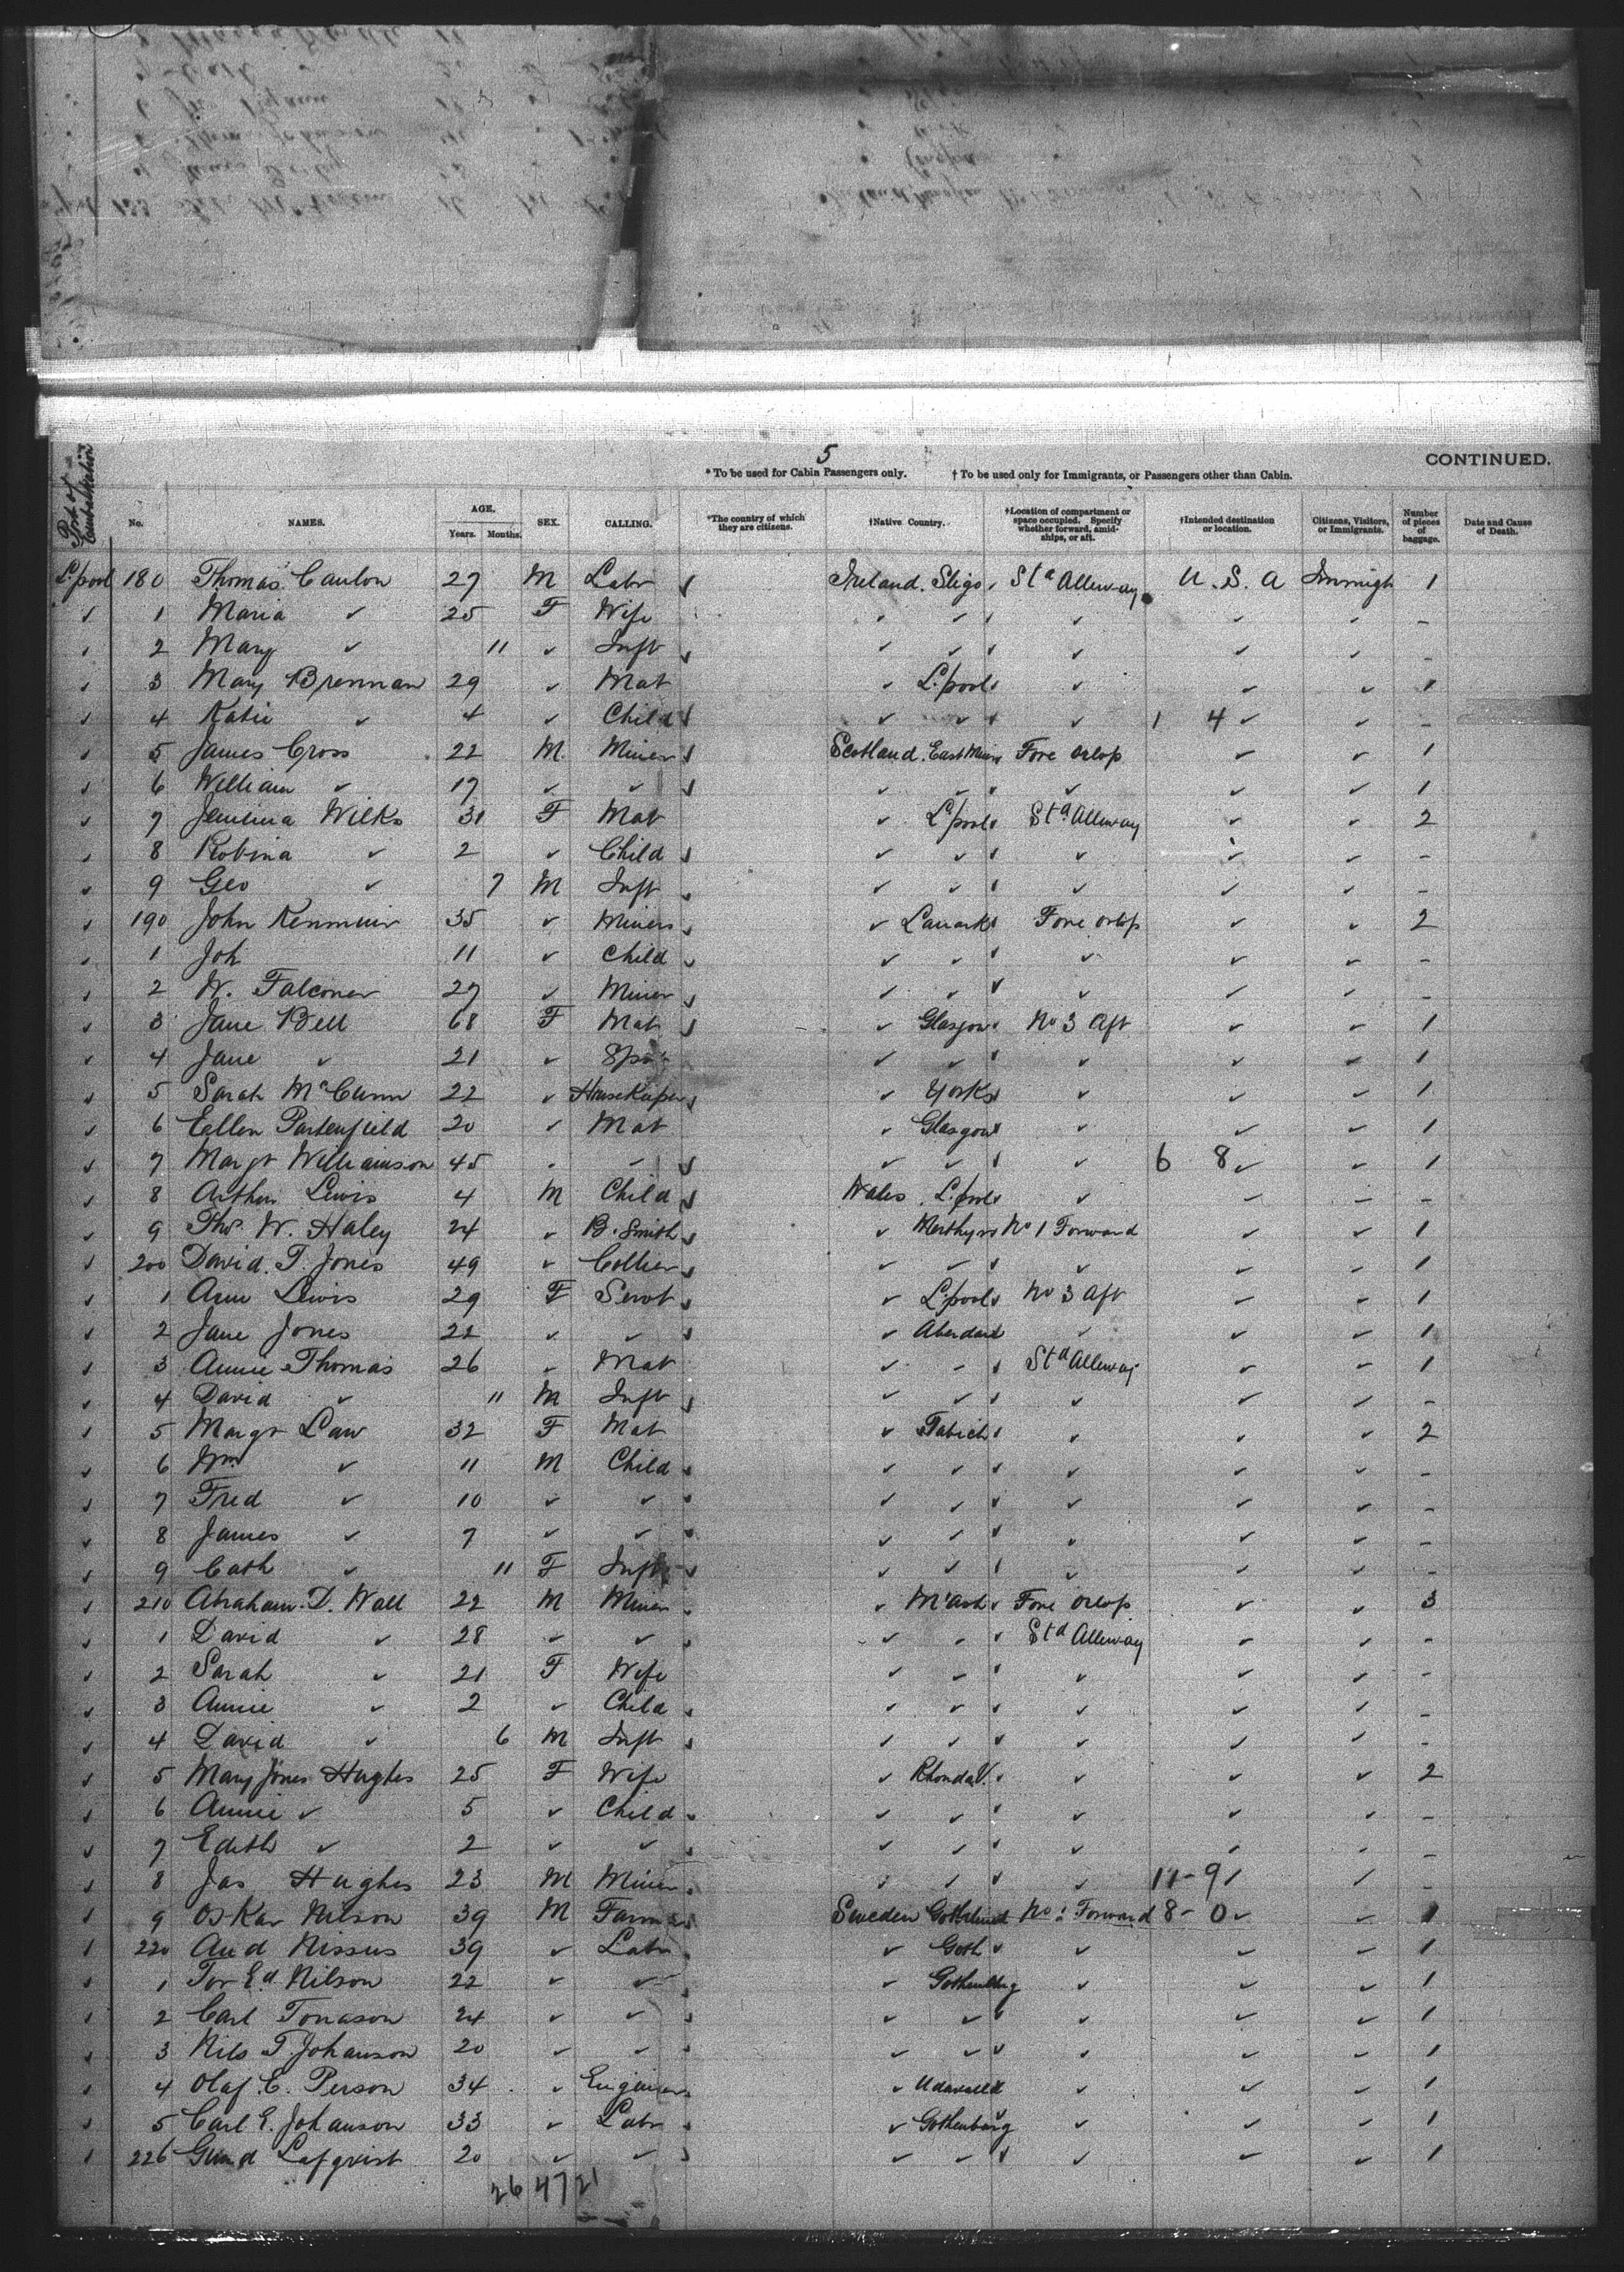 5
* To be used for Cabin Passengers only. † To be used only for Immigrants, or Passengers other than Cabin. CONTINUED.
Port of Embarkation
No. NAMES. AGE. Years. Months. SEX. CALLING. *The country of which they are citizens. †Native Country. †Location of compartment or space occupied. Specify whether forward, amidships, or aft. †Intended destination or location. Citizens, Visitors, or Immigrants. Number of pieces of baggage. Date and Cause of Death.
L'pool 180 Thomas Canlon 27 M Labr Ireland. Sligo Std Alleway U. S. A Immigt 1
✓ 1 Maria ✓ 25 F Wife ✓ ✓ ✓ ✓ ✓ -
✓ 2 Mary ✓ 11 ✓ Inft ✓ ✓ ✓ ✓ ✓ -
✓ 3 Mary Brennan 29 ✓ Mat ✓ L'pool ✓ ✓ ✓ 1
✓ 4 Katie ✓ 4 ✓ Child ✓ ✓ ✓ 1 4 ✓ ✓ -
✓ 5 James Cross 22 M Miner Scotland. East Muir Fore orlop ✓ ✓ 1
✓ 6 William ✓ 17 ✓ ✓ ✓ ✓ ✓ ✓ ✓ 1
✓ 7 Jemima Wilks 31 F Mat ✓ L'pool Std Alleway ✓ ✓ 2
✓ 8 Robina ✓ 2 ✓ Child ✓ ✓ ✓ ✓ ✓ -
✓ 9 Geo ✓ 7 M Inft ✓ ✓ ✓ ✓ ✓ -
✓ 190 John Kenmuir 35 ✓ Miners ✓ Lanark Fore orlop ✓ ✓ 2
✓ 1 Joh 11 ✓ Child ✓ ✓ ✓ ✓ ✓ -
✓ 2 W. Falconer 27 ✓ Miner ✓ ✓ ✓ ✓ ✓ -
✓ 3 Jane Bell 68 F Mat ✓ Glasgow No 3 Aft ✓ ✓ 1
✓ 4 Jane ✓ 21 ✓ Spin ✓ ✓ ✓ ✓ ✓ 1
✓ 5 Sarah McCunn 22 ✓ Housekeeper ✓ Yorks ✓ ✓ ✓ 1
✓ 6 Ellen Partenfield 20 ✓ Mat ✓ Glasgow ✓ ✓ ✓ 1
✓ 7 Margt Williamson 45 ✓ ✓ ✓ ✓ ✓ 6 8 ✓ ✓ 1
✓ 8 Arthur Lewis 4 M Child Wales L'pool ✓ ✓ - -
✓ 9 Thos. W. Haley 24 ✓ B. Smith ✓ Merthyr No 1 Forward ✓ ✓ 1
✓ 200 David. T. Jones 49 ✓ Collier ✓ ✓ ✓ ✓ ✓ 1
✓ 1 Ann Lewis 29 F Servt ✓ L'pool No 3 Aft ✓ ✓ 1
✓ 2 Jane Jones 22 ✓ ✓ ✓ Aberdare ✓ ✓ ✓ 1
✓ 3 Annie Thomas 26 ✓ Mat ✓ ✓ Std Alleway ✓ ✓ 1
✓ 4 David ✓ 11 M Inft ✓ ✓ ✓ ✓ ✓ -
✓ 5 Margt Law 32 F Mat ✓ ✓ ✓ ✓ 2
✓ 6 Wm ✓ 11 M Child ✓ ✓ ✓ ✓ ✓ -
✓ 7 Fred ✓ 10 ✓ ✓ ✓ ✓ ✓ ✓ ✓ -
✓ 8 James ✓ 7 ✓ ✓ ✓ ✓ ✓ ✓ ✓ -
✓ 9 Cath ✓ 11 F Inft ✓ ✓ ✓ ✓ ✓ -
✓ 210 Abraham. D. Wall 22 M Miner ✓ Fore orlop ✓ ✓ 3
✓ 1 David ✓ 28 ✓ ✓ ✓ ✓ Std Alleway ✓ ✓ -
✓ 2 Sarah ✓ 21 F Wife ✓ ✓ ✓ ✓ ✓ -
✓ 3 Annie ✓ 2 ✓ Child ✓ ✓ ✓ ✓ ✓ -
✓ 4 David ✓ 6 M Inft ✓ ✓ ✓ ✓ ✓ -
✓ 5 Mary Jones Hughes 25 F Wife ✓ Rhonda V. ✓ ✓ ✓ 2
✓ 6 Annie ✓ 5 ✓ Child ✓ ✓ ✓ ✓ ✓ -
✓ 7 Edith ✓ 2 ✓ ✓ ✓ ✓ ✓ ✓ ✓ -
✓ 8 Jas Hughes 23 M Miner ✓ ✓ ✓ 11-9 ✓ ✓ -
✓ 9 Oskar Nilson 39 M Farmer Sweden No 1 Forward 8-0 ✓ ✓ 1
✓ 220 And Nissus 39 ✓ Labr ✓ Goth ✓ ✓ ✓ 1
✓ 1 Tor Ed Nilson 22 ✓ ✓ ✓ Gothenburg ✓ ✓ ✓ 1
✓ 2 Carl Tonason 24 ✓ ✓ ✓ ✓ ✓ ✓ ✓ 1
✓ 3 Nils T. Johanson 20 ✓ ✓ ✓ ✓ ✓ ✓ ✓ 1
✓ 4 Olaf. C. Person 34 ✓ Engineer ✓ ✓ ✓ ✓ 1
✓ 5 Carl E. Johanson 33 ✓ Labr ✓ Gothenburg ✓ ✓ ✓ 1
✓ 226 Gund Lafqvist 20 ✓ ✓ ✓ ✓ ✓ ✓ ✓ 1
26 47 21